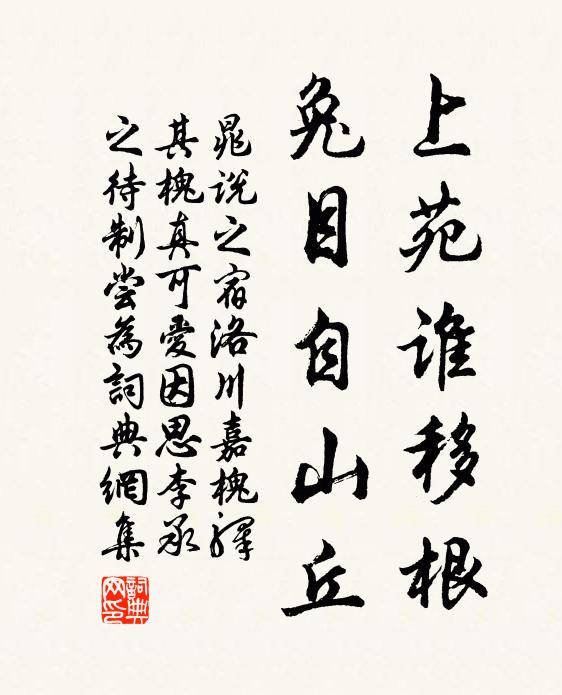 上苑谁移根
兔目自山丘
晁说之宿洛川嘉槐驿
其槐真可爱因思李承
之待制尝为詞典網集
詞典网印